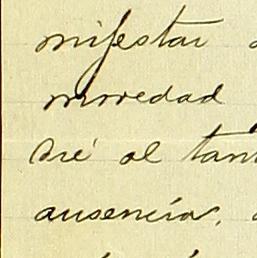 nifestar
novedad
dré al tan
ausencia,